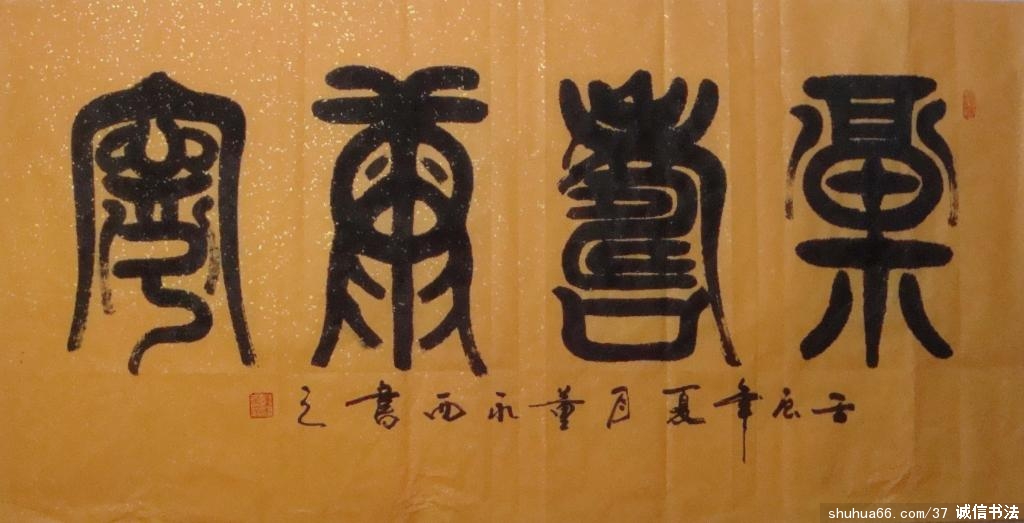 壽康寧
壬辰年夏月董永西書之
shuhua66.com/37 诚信书法